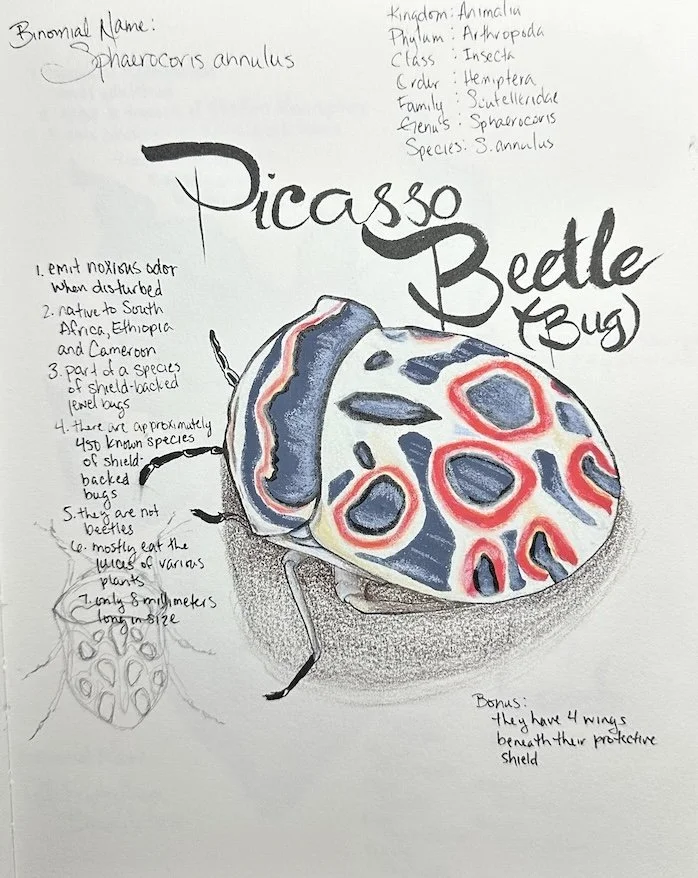 Binomial Name:
Sphaerocoris annulus
Kingdom: Animalia
Phylum: Arthropoda
Class: Insecta
Order: Hemiptera
Family: Scutelleridae
Genus: Sphaerocoris
Species: S. annulus
Picasso
Beetle
(Bug)
1. emit noxious odor
when disturbed
2. native to South
Africa, Ethiopia
and Cameroon
3. part of a species
of shield-backed
jewel bugs
4. there are approximately
450 known species
of shield-
backed
bugs
5. they are not
beetles
6. mostly eat the
juices of various
plants
7. only 8 millimeters
long in size
Bonus:
they have 4 wings
beneath their protective
shield